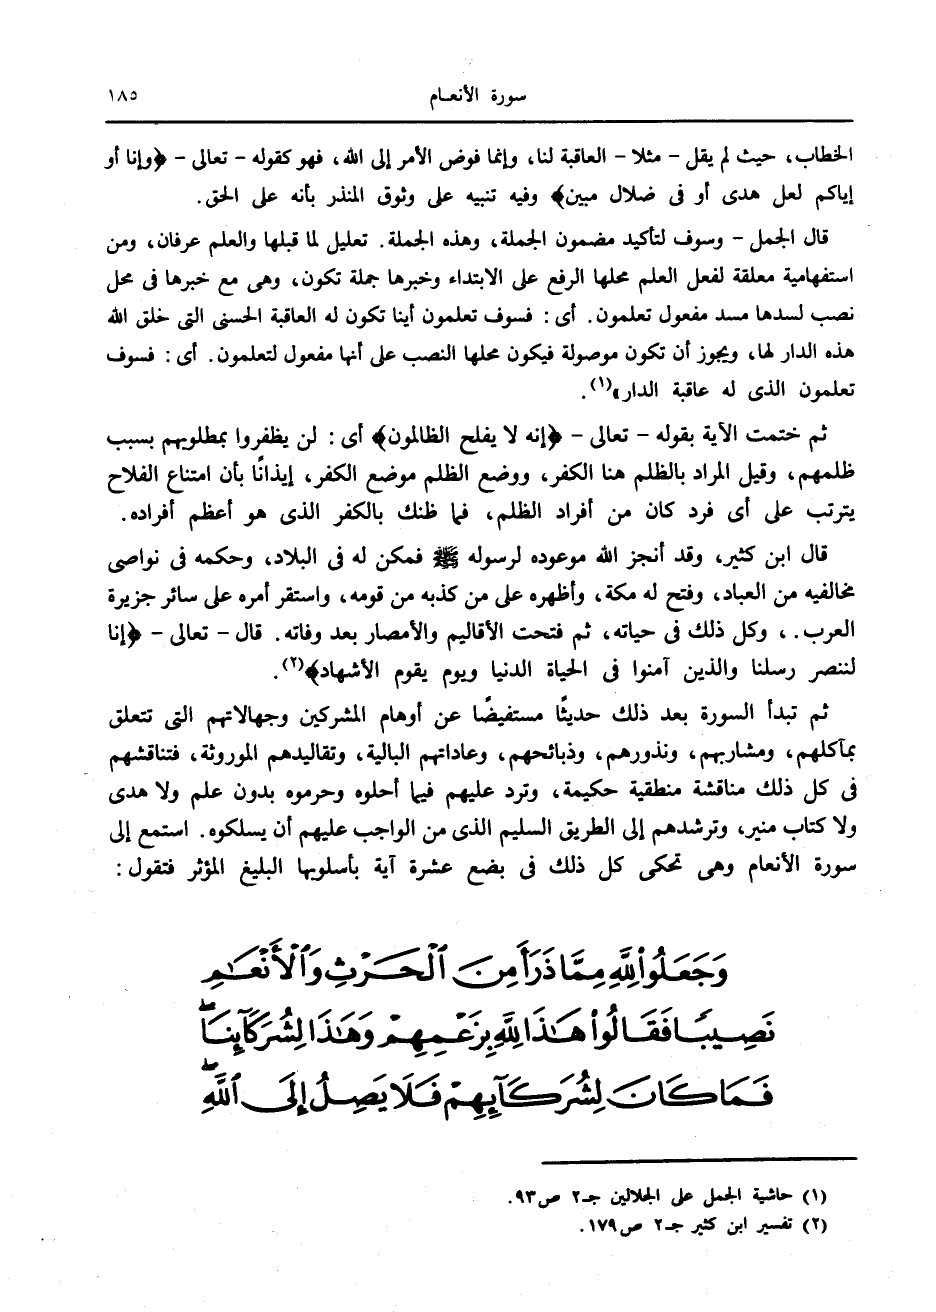 سورة الأنعـام
١٨٥
الخطاب، حيث لم يقل - مثلا - العاقبة لنا، وإنما فوض الأمر إلى الله، فهو كقوله - تعالى - ﴿وإنا أو
إياكم لعل هدى أو فى ضلال مبين﴾ وفيه تنبيه على وثوق المنذر بأنه على الحق.
قال الجمل - وسوف لتأكيد مضمون الجملة، وهذه الجملة. تعليل لما قبلها والعلم عرفان، ومن
استفهامية معلقة لفعل العلم محلها الرفع على الابتداء وخبرها جملة تكون، وهى مع خبرها فى محل
نصب لسدها مسد مفعول تعلمون. أى : فسوف تعلمون أينا تكون له العاقبة الحسنى التى خلق الله
هذه الدار لها، ويجوز أن تكون موصولة فيكون محلها النصب على أنها مفعول لتعلمون. أى : فسوف
تعلمون الذى له عاقبة الدار»(١).
ثم ختمت الآية بقوله - تعالى - ﴿إنه لا يفلح الظالمون﴾ أى : لن يظفروا بمطلوبهم بسبب
ظلمهم، وقيل المراد بالظلم هنا الكفر، ووضع الظلم موضع الكفر، إيذانًا بأن امتناع الفلاح
يترتب على أى فرد كان من أفراد الظلم، فما ظنك بالكفر الذى هو أعظم أفراده.
قال ابن كثير، وقد أنجز الله موعوده لرسوله ﷺ فمكن له فى البلاد، وحكمه فى نواصى
مخالفيه من العباد، وفتح له مكة، وأظهره على من كذبه من قومه، واستقر أمره على سائر جزيرة
العرب. ، وكل ذلك فى حياته، ثم فتحت الأقاليم والأمصار بعد وفاته. قال - تعالى - ﴿إنا
لننصر رسلنا والذين آمنوا فى الحياة الدنيا ويوم يقوم الأشهاد﴾(٢).
ثم تبدأ السورة بعد ذلك حديثًا مستفيضًا عن أوهام المشركين وجهالاتهم التى تتعلق
بمآكلهم، ومشاربهم، ونذورهم، وذبائحهم، وعاداتهم البالية، وتقاليدهم الموروثة، فتناقشهم
فى كل ذلك مناقشة منطقية حكيمة، وترد عليهم فيما أحلوه وحرموه بدون علم ولا هدى
ولا كتاب منير، وترشدهم إلى الطريق السليم الذى من الواجب عليهم أن يسلكوه. استمع إلى
سورة الأنعام وهى تحكى كل ذلك فى بضع عشرة آية بأسلوبها البليغ المؤثر فتقول :
وَجَعَلُوا۟ لِلَّهِ مِمَّا ذَرَأَ مِنَ ٱلْحَرْثِ وَٱلْأَنْعَـٰمِ
نَصِيبًا فَقَالُوا۟ هَـٰذَا لِلَّهِ بِزَعْمِهِمْ وَهَـٰذَا لِشُرَكَآئِنَا ۖ
فَمَا كَانَ لِشُرَكَآئِهِمْ فَلَا يَصِلُ إِلَى ٱللَّهِ ۖ
(١) حاشية الجمل على الجلالين جـ٢ ص٩٣.
(٢) تفسير ابن كثير جـ٢ ص١٧٩.